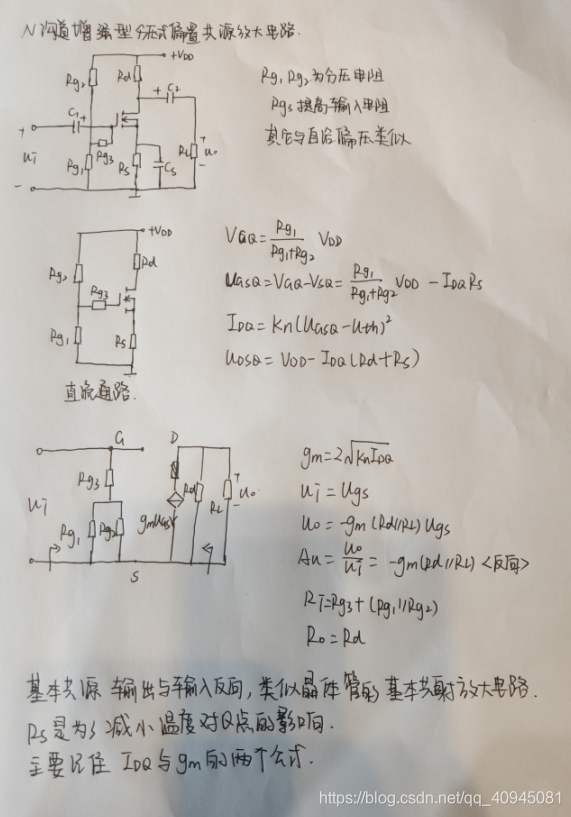 N沟道增强型分压式偏置共源放大电路.
+VDD
Rg2
Rd
+ C2
C1 +
+
ui
-
Rg3
Rg1
Rs
Cs
RL
+
uo
-
Rg1, Rg2为分压电阻
Rg3提高输入电阻
其它与自给偏压类似
+VDD
Rd
Rg2
Rg3
Rg1
Rs
直流通路.
VGQ = Rg1/(Rg1+Rg2) VDD
UGSQ = VGQ - VSQ = Rg1/(Rg1+Rg2) VDD - IDQ Rs
IDQ = Kn(UGSQ - Uth)²
UDSQ = VDD - IDQ(Rd+Rs)
G
D
Rg3
ui
Rg1
Rg2
gmUgs
Rd
RL
+
uo
-
S
gm = 2√(Kn IDQ)
ui = Ugs
uo = -gm(Rd//RL)Ugs
Au = uo/ui = -gm(Rd//RL) <反向>
Ri = Rg3 + (Rg1//Rg2)
Ro = Rd
基本共源 输出与输入反向, 类似晶体管的基本共射放大电路.
Rs是为了减小温度对Q点的影响.
主要记住 IDQ 与 gm 的两个公式.
https://blog.csdn.net/qq_40945081